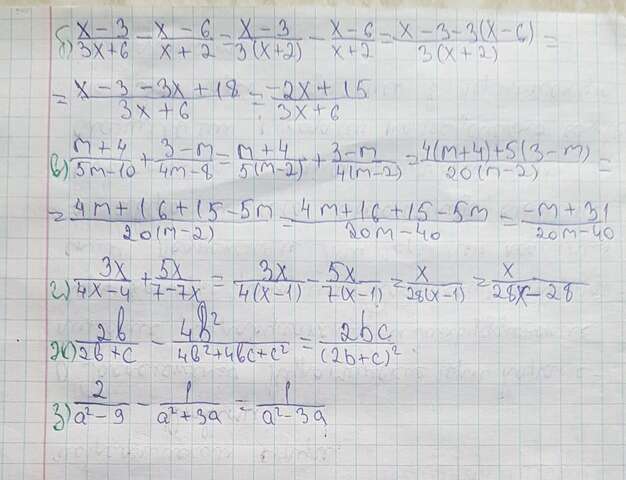 б) (x-3)/(3x+6) - (x-6)/(x+2) = (x-3)/(3(x+2)) - (x-6)/(x+2) = (x-3-3(x-6))/(3(x+2)) =
= (x-3-3x+18)/(3x+6) = (-2x+15)/(3x+6)
в) (m+4)/(5m-10) + (3-m)/(4m-8) = (m+4)/(5(m-2)) + (3-m)/(4(m-2)) = (4(m+4)+5(3-m))/(20(m-2)) =
= (4m+16+15-5m)/(20(m-2)) = (4m+16+15-5m)/(20m-40) = (-m+31)/(20m-40)
г) 3x/(4x-4) + 5x/(7-7x) = 3x/(4(x-1)) - 5x/(7(x-1)) = x/(28(x-1)) = x/(28x-28)
ж) 2b/(2b+c) - 4b²/(4b²+4bc+c²) = 2bc/(2b+c)²
з) 2/(a²-9) - 1/(a²+3a) = 1/(a²-3a)